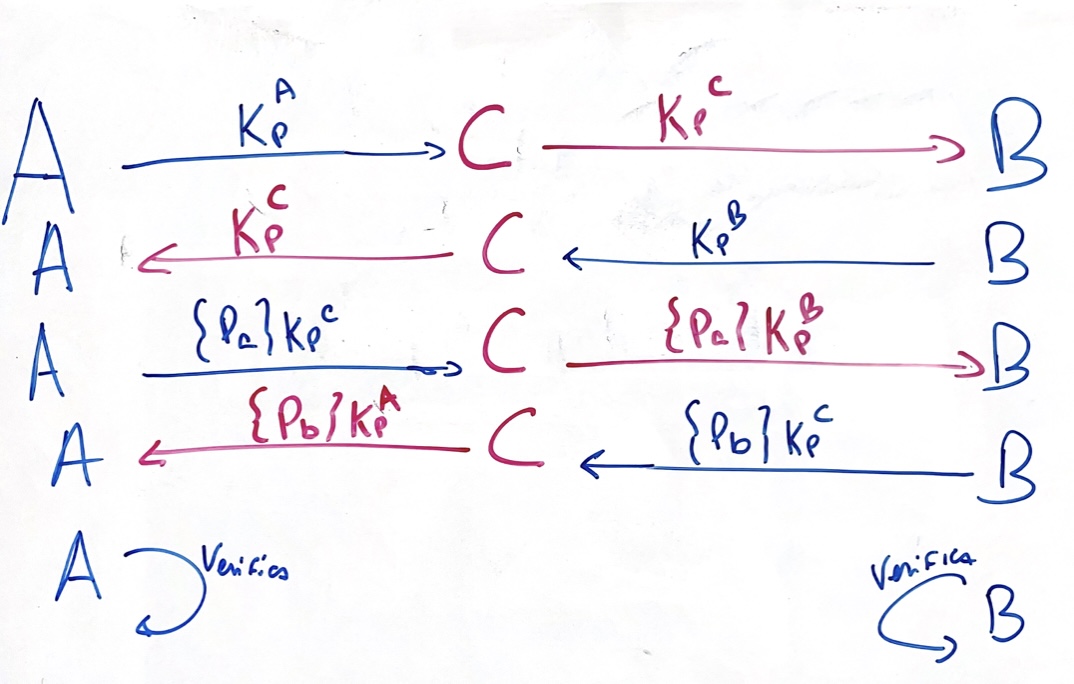 A Kp^A C Kp^C B
A Kp^C C Kp^B B
A {Pa}Kp^C C {Pa}Kp^B B
A {Pb}Kp^A C {Pb}Kp^C B
A Verifica Verifica B